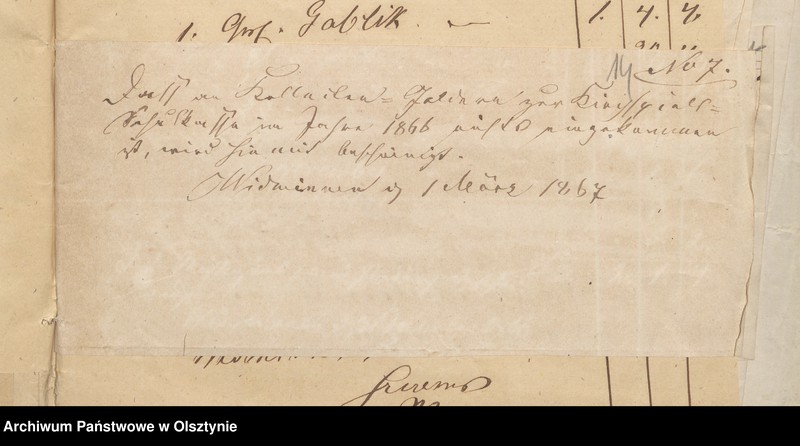 1. Grf. Gablik. — 1. 4. 4.
14 No 7.
Dass an Kollecten-Geldern zur Kirchspiels-
Schulkasse im Jahre 1866 nichts eingekommen
ist, wird hiermit bescheinigt.
Widminnen d 1 März 1867
Czerems
Archiwum Państwowe w Olsztynie